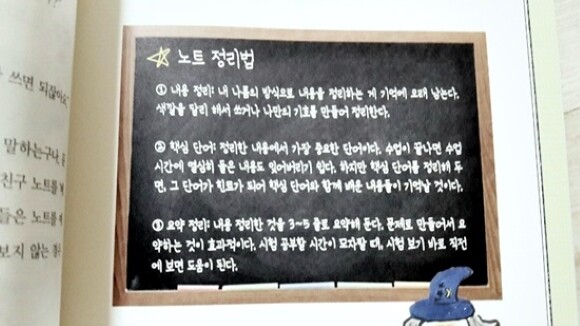 노트 정리법
① 내용 정리: 내 나름의 방식으로 내용을 정리하는 게 기억에 오래 남는다.
색깔을 달리 해서 쓰거나 나만의 기호를 만들어 정리한다.
② 핵심 단어: 정리한 내용에서 가장 중요한 단어이다. 수업이 끝나면 수업
시간에 열심히 들은 내용도 잊어버리기 쉽다. 하지만 핵심 단어를 정리해 두
면, 그 단어가 힌트가 되어 핵심 단어와 함께 배운 내용들이 기억날 것이다.
③ 요약 정리: 내용 정리한 것을 3~5 줄로 요약해 둔다. 문제로 만들어서 요
약하는 것이 효과적이다. 시험 공부할 시간이 모자랄 때, 시험 보기 바로 직전
에 보면 도움이 된다.
쓰면 되잖아요
말하는구나
친구 노트를
들은 노트를
보지 않는